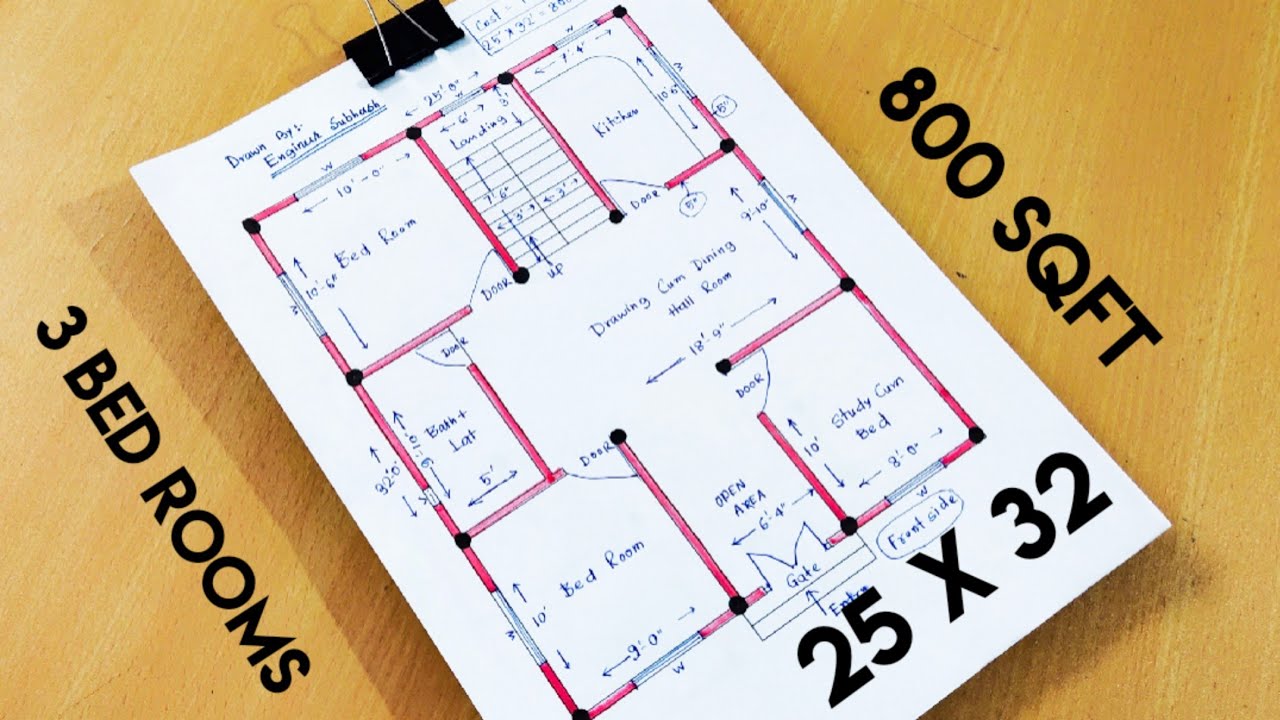 Cost =
25' X 32' = 800
Drawn By:-
Engineer Subhash
25'-0"
7'-4"
6'
3'
Landing
Kitchen
10'-6"
5"
W
W
10'-0"
Bed Room
10'-6"
W
7'-6"
3'
3'
DOOR
5"
9'-10"
W
DOOR
UP
Drawing Cum Dining
Hall Room
18'-9"
DOOR
Bath+
Lat
9'-10"
5'
32'-0"
V
DOOR
DOOR
Study Cum
Bed
10'
8'-0"
W
Front side
OPEN
AREA
6'-4"
Gate
Entry
Bed Room
10'
W
9'-0"
W
800 SQFT
3 BED ROOMS
25 X 32